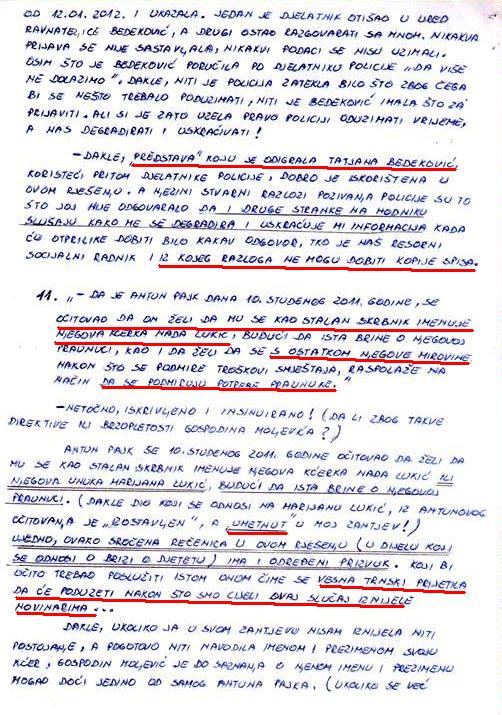 OD 12.01.2012. I UKAZALA. JEDAN JE DJELATNIK OTIŠAO U URED
RAVNATELJICE BEDEKOVIĆ, A DRUGI OSTAO RAZGOVARATI SA MNOM. NIKAKVA
PRIJAVA SE NIJE SASTAVLJALA, NIKAKVI PODACI SE NISU UZIMALI.
OSIM ŠTO JE BEDEKOVIĆ PORUČILA PO DJELATNIKU POLICIJE „DA VIŠE
NE DOLAZIMO“. DAKLE, NITI JE POLICIJA ZATEKLA BILO ŠTO ZBOG ČEGA
BI SE NEŠTO TREBALO PODUZIMATI, NITI JE BEDEKOVIĆ IMALA ŠTO ZA
PRIJAVITI. ALI SI JE ZATO UZELA PRAVO POLICIJI ODUZIMATI VRIJEME,
A NAS DEGRADIRATI I USKRAĆIVATI!
- DAKLE, „PREDSTAVA“ KOJU JE ODIGRALA TATJANA BEDEKOVIĆ,
KORISTEĆI PRITOM DJELATNIKE POLICIJE, DOBRO JE ISKORIŠTENA U
OVOM RJEŠENJU. A NJEZINI STVARNI RAZLOZI POZIVANJA POLICIJE SU TO
ŠTO JOJ NIJE ODGOVARALO DA I DRUGE STRANKE NA HODNIKU
SLUŠAJU KAKO ME SE DEGRADIRA I USKRAĆUJE MI INFORMACIJA KADA
ĆU OTPRILIKE DOBITI BILO KAKAV ODGOVOR, TKO JE NAŠ RESORNI
SOCIJALNI RADNIK I IZ KOJEG RAZLOGA NE MOGU DOBITI KOPIJE SPISA.
11. „- DA JE ANTUN PAJK DANA 10. STUDENOG 2011. GODINE, SE
OČITOVAO DA ON ŽELI DA MU SE KAO STALAN SKRBNIK IMENUJE
NJEGOVA KĆERKA NADA LUKIĆ, BUDUĆI DA ISTA BRINE O NJEGOVOJ
PRAUNUCI, KAO I DA ŽELI DA SE S OSTATKOM NJEGOVE MIROVINE
NAKON ŠTO SE PODMIRE TROŠKOVI SMJEŠTAJA, RASPOLAŽE NA
NAČIN DA SE PODMIRUJU POTREBE PRAUNUKE.“
- NETOČNO, ISKRIVLJENO I INSINUIRANO! (DA LI ZBOG TAKVE
DIREKTIVE ILI BEZOPLETOSTI GOSPODINA MOLJEVIĆA?)
ANTUN PAJK SE 10. STUDENOG 2011. GODINE OČITOVAO DA ŽELI DA
MU SE KAO STALAN SKRBNIK IMENUJE NJEGOVA KĆERKA NADA LUKIĆ ILI
NJEGOVA UNUKA MARIJANA LUKIĆ, BUDUĆI DA ISTA BRINE O NJEGOVOJ
PRAUNUCI. (DAKLE DIO KOJI SE ODNOSI NA MARIJANU LUKIĆ, IZ ANTUNOVOG
OČITOVANJA JE „IZOSTAVLJEN“, A „UMETNUT“ U MOJ ZAHTJEV!)
UJEDNO, OVAKO SROČENA REČENICA U OVOM RJEŠENJU (U DIJELU KOJI
SE ODNOSI O BRIZI O DJETETU) IMA I ODREĐENI PRIZVUK. KOJI BI
OČITO TREBAO POSLUŽITI ISTOM ONOM ČIME SE VESNA TRNSKI PRIJETILA
DA ĆE PODUZETI NAKON ŠTO SMO CIJELI OVAJ SLUČAJ IZNIJELE
NOVINARIMA...
DAKLE, UKOLIKO JA U SVOM ZAHTJEVU NISAM IZNIJELA NITI
POSTOJANJE, A POGOTOVO NITI NAVODILA IMENOM I PREZIMENOM SVOJU
KĆER, GOSPODIN MOLJEVIĆ JE DO SAZNANJA O NJENOM IMENU I PREZIMENU
MOGAO DOĆI JEDINO OD SAMOG ANTUNA PAJKA. (UKOLIKO SE VEĆ